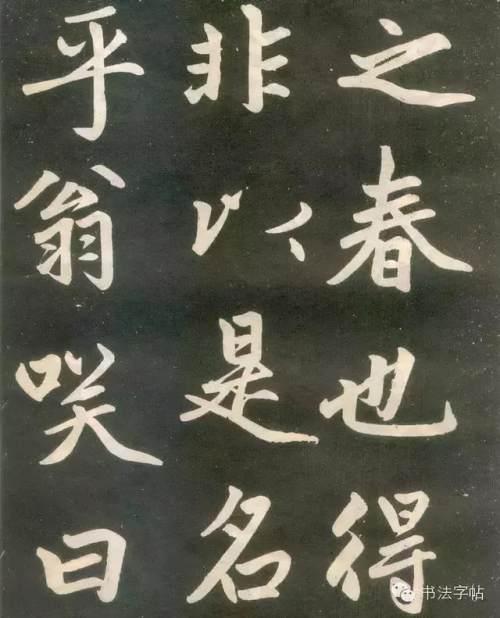 之春也得
非以是名
乎翁咲曰
书法字帖